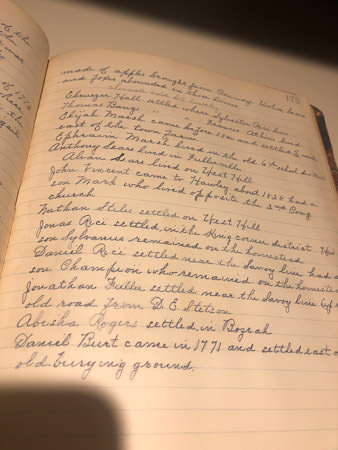 of the
of 1772
175
made of apples brought from Conway. Wolves bears
and foxes abounded in those times
Ebenezer Hall settled where Sylvester
Thomas Bangs " " Dennis
Elijah Marsh came before 1800 and settled
east of the town farm
Ephraim Marsh lived in the old 6 school district
Anthony Sears lived in Fullerville
Alvan Sears lived on West Hill
John Vincent came to Hawley about 1828 had a
son Mark who lived opposite the 2nd Cong
church
Nathan Stiles settled on West Hill
Jonas Rice settled in the King corner district His
son Sylvanus remained on the homestead
Daniel Rice settled near the Savoy line had a
son Champion who remained on the homestead
Jonathan Fuller settled near the Savoy line
old road from D. E. Stetson
Abisha Rogers settled in Bozrah
Daniel Burt came in 1771 and settled east of
old burying ground.